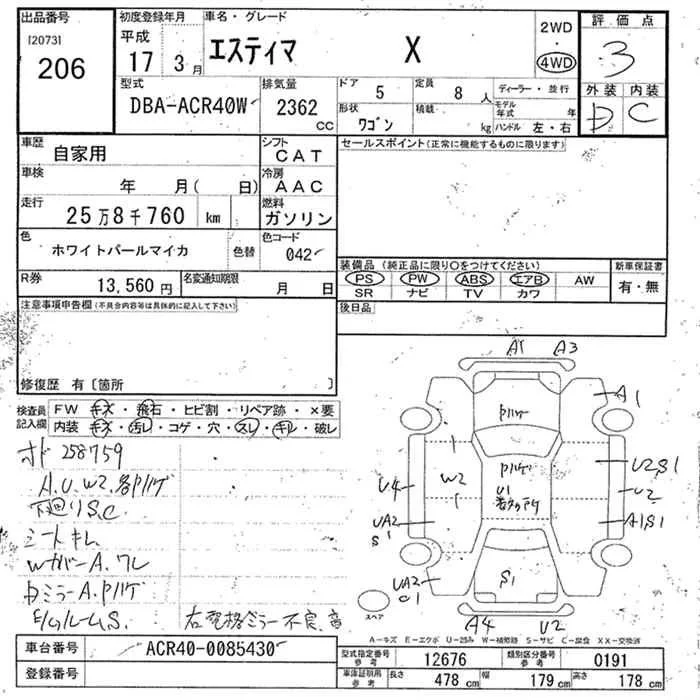 出品番号
[2073]
206
初度登録年月
平成
17年3月
車名・グレード
エスティマ X
2WD
4WD
評価点
3
外装 内装
D C
型式
DBA-ACR40W
排気量
2362 cc
ドア
5
定員
8人
形状
ワゴン
積載
kg
ディーラー・並行
モデル年式 年
ハンドル 左・右
車歴
自家用
シフト
CAT
車検
年 月( 日)
冷房
AAC
走行
25万8千760 km
燃料
ガソリン
色
ホワイトパールマイカ
色替
色コード
042
R券
13,560円
名変通知期限
月 日
セールスポイント(正常に機能するものに限ります)
装備品(純正品に限り〇をつけてください)
PS PW ABS エアB AW
SR ナビ TV カワ
新車保証書
有・無
後日品
注意事項申告欄(不具合内容等は具体的に記入して下さい)
修復歴 有〔箇所 〕
検査員記入欄
FW キズ・飛石・ヒビ割・リペア跡・×要
内装 キズ・汚レ・コゲ・穴・スレ・キレ・破レ
オド258759
A.U.W2.各Pハゲ
下回りS.C
シートキレ
A1 A3
A1
Pハゲ
Pハゲ
U1
W2
U4
U2S1
U2
UA2
S1
A1S1
UA2
C1
S1
A4 U2
スペア
A-キズ E-エクボ U-凹み W-補修跡 S-サビ C-腐食 XX-交換済
車台番号
ACR40-0085430
登録番号
型式指定番号 参考
12676
類別区分番号 参考
0191
車庫証明用 参考
長さ 478 cm
幅 179 cm
高さ 178 cm